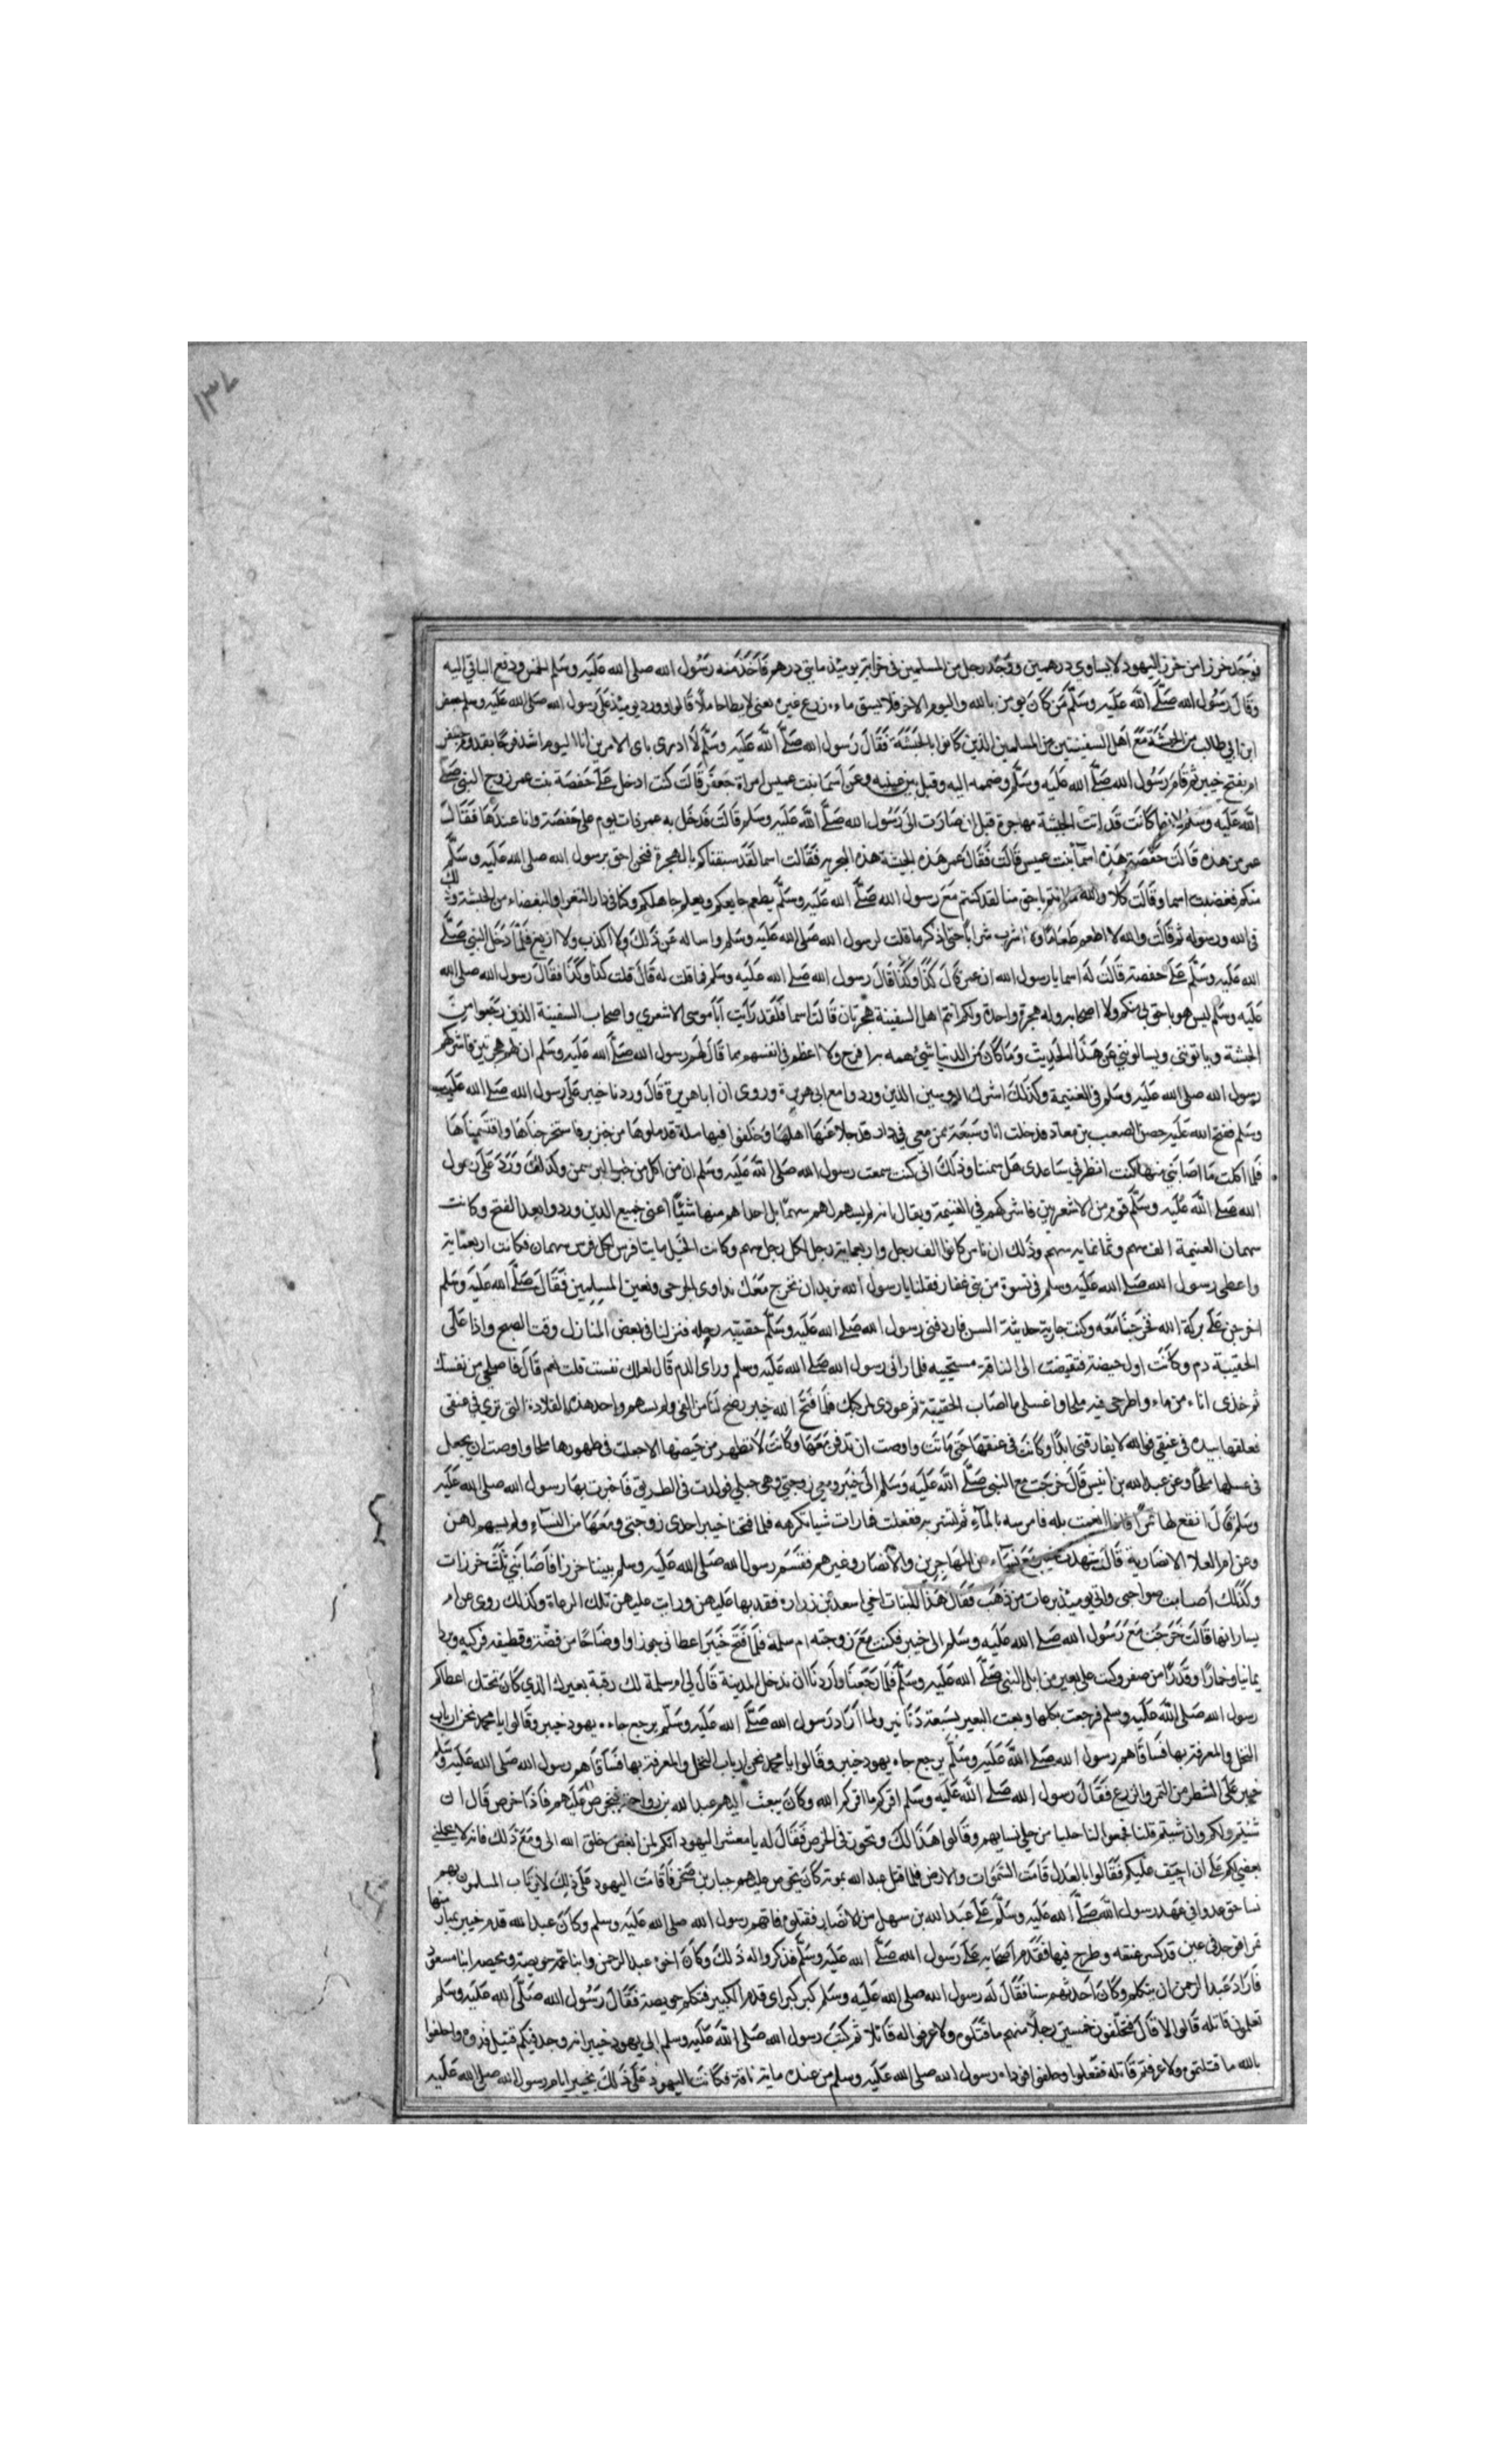 ١٣٧
فوجد خرزا من خرز اليهود لا يساوي درهمين ووجد رجل من المسلمين في خرابة يومئذ مايتي درهم فاخذ منه رسول الله صلى الله عليه وسلم الخمس ودفع الباقي اليه
وقال رسول الله صلى الله عليه وسلم من كان يومن بالله واليوم الاخر فلا يسق ماءه زرع غيره يعني لا يطا حاملا قالوا وورد يومئذ على رسول الله صلى الله عليه وسلم جعفر
ابن ابي طالب من الحبشة مع اهل السفينتين من المسلمين الذين كانوا بالحبشة فقال رسول الله صلى الله عليه وسلم لا ادري باى الامرين انا اليوم اشد فرحا بقدوم جعفر
ام بفتح خيبر ثم قام رسول الله صلى الله عليه وسلم وضمه اليه وقبل بين عينيه وعن اسما بنت عميس امراة جعفر قالت كنت ادخل على حفصة بنت عمر زوج النبي صلى
الله عليه وسلم لانها كانت قد اتت الحبشة مهاجرة قبل ان صارت الى رسول الله صلى الله عليه وسلم قالت فدخل به عمر ذات يوم على حفصة وانا عندها فقال
عمر من هذه قالت حفصة هذه اسما بنت عميس قالت فقال عمر هذه الحبشة هذه البحرية فقالت اسما لقد سبقناكم بالهجرة فنحن احق برسول الله صلى الله عليه وسلم
منكم فغضبت اسما وقالت كلا والله ما انتم باحق منا لقد كنتم مع رسول الله صلى الله عليه وسلم يطعم جايعكم ويعلم جاهلكم وكنا في دار البغضاء من الحبشة وذلك
في الله ورسوله ثم قالت والله لا اطعم طعاما ولا اشرب شرابا حتى اذكر ما قلت لرسول الله صلى الله عليه وسلم واساله عن ذلك ولا اكذب ولا ازيغ فلما دخل النبي صلى
الله عليه وسلم على حفصة قالت له اسما يا رسول الله ان عمر قال كذا وكذا قال رسول الله صلى الله عليه وسلم فما قلت له قال قلت كذا وكذا فقال رسول الله صلى الله
عليه وسلم ليس هو باحق بي منكم ولا اصحابه وله هجرة واحدة ولكم انتم اهل السفينة هجرتان قالت اسما فلقد رايت ابا موسى الاشعري واصحاب السفينة الذين رجعوا من
الحبشة وياتونني ويسالونني عن هذا الحديث وما كان من الدنيا شي هم به افرح ولا اعظم في انفسهم مما قال لهم رسول الله صلى الله عليه وسلم ان لهم هجرتين فاشركهم
رسول الله صلى الله عليه وسلم في الغنيمة وكذلك اشرك الدوسين الذين وردوا مع ابي هريرة وروى ان ابا هريرة قال وردنا خيبر على رسول الله صلى الله عليه
وسلم ففتح الله عليه حصن الصعب بن معاذ فدخلت انا وسبعة ممن معي في دار قد جلا عنها اهلها وخلفوا فيها سلة قد ملوها من خبز بر فاستخرجناها واقتسمناها
فلما اكلت ما اصابني منها كنت انظر في ساعدى هل سمنت وذلك اني كنت سمعت رسول الله صلى الله عليه وسلم ان من اكل من خبز البر سمن وكذلك ورد على رسول
الله صلى الله عليه وسلم قوم من الاشعريين فاشركهم في الغنيمة ويقال انه لم يسهم لهم سهما بل احداهم منها شيئا اعني جميع الذين وردوا بعد الفتح وكانت
سهمان الغنيمة الف سهم وثمانماية سهم وذلك ان الناس كانوا الف رجل واربعماية رجل لكل رجل سهم وكانت الخيل مايتا فرس لكل فرس سهمان فكانت اربعماية
واعطى رسول الله صلى الله عليه وسلم في نسوة من بني غفار فقلنا يا رسول الله نريد ان نخرج معك نداوى الجرحى ونعين المسلمين فقال صلى الله عليه وسلم
اخرجن على بركة الله فخرجنا معه وكنت جارية حديثة السن فاردفني رسول الله صلى الله عليه وسلم حقيبة رحله فنزلنا في بعض المنازل وقت الصبح واذا على
الحقيبة دم وكانت اول حيضة فتقبضت الى الناقة مستحيية فلما راني رسول الله صلى الله عليه وسلم وراى الدم قال لعلك نفست قلت نعم قال فاصلحي من نفسك
ثم خذى اناء من ماء واطرحي فيه ملحا واغسلي ما اصاب الحقيبة ثم عودى لمركبك فلما فتح الله خيبر رضخ لنا من الفي ولم يسهم واحد هذه القلادة التي ترى في عنقي
فعلقها بيده في عنقي فوالله لا يفارقني ابدا وكانت في عنقها حتى ماتت واوصت ان تدفن معها وكانت لا تطهر من حيضتها الا جعلت في طهورها ملحا واوصت ان يجعل
في غسلها ملحا وعن عبد الله بن انيس قال خرجت مع النبي صلى الله عليه وسلم الى خيبر ومعي زوجتي وهي حبلى فولدت في الطريق فاخبرت بها رسول الله صلى الله عليه
وسلم قال انقع لها تمرا فاذا انعمت بله فامرسه بالماء ثم لتشربه ففعلت فما رات شيا تكرهه فلما فتحنا خيبر احدى زوجتي ومعها من النساء ولم يسهم لهن
وعن ام العلا الانصارية قالت شهدت خيبر مع نساء من المهاجرين والانصار وغيرهم فقسم رسول الله صلى الله عليه وسلم بيننا خرزا فاصابني ثلث خرزات
وكذلك اصابت صواحبي واتي يومئذ برعات من ذهب فقال هذا لبنات اخي اسعد بن زرارة فقدم بها عليهن ورايت عليهن تلك الرعاة وكذلك روى عن ام
يسار انها قالت خرجت مع رسول الله صلى الله عليه وسلم الى خيبر فكنت مع زوجته ام سلمة فلما فتح خيبر اعطاني اوضاحا من فضة وقطيفة فركبه وبردا
يمانيا وخمارا وقدرا من صفر وكنت على بعير من ابل النبي صلى الله عليه وسلم فلما رجعنا واردنا ان ندخل المدينة قال لي ام سلمة لك رقبة بعيرك الذي كان تحتك اعطاكم
رسول الله صلى الله عليه وسلم فرجعت بكلها وبعت البعير بسبعة دنانير ولما اراد رسول الله صلى الله عليه وسلم يرجع جاءه يهود خيبر وقالوا يا محمد نحن ارباب
النخل والمعرفة بها فساقاهم رسول الله صلى الله عليه وسلم يرجع جاءه يهود خيبر وقالوا يا محمد نحن ارباب النخل والمعرفة بها فساقاهم رسول الله صلى الله عليه وسلم
خيبر على الشطر من التمر والزرع فقال رسول الله صلى الله عليه وسلم اقركم ما اقركم الله وكان يبعث اليهم عبد الله بن رواحة فيخرص عليهم فاذا خرص قال ان
شئتم ولكم وان شئتم قلنا فجمعوا لنا حليا من حلي نسايهم وقالوا هذا لك وتجوز في الخرص فقال له يا معشر اليهود انكم لمن ابغض خلق الله الى ومع ذلك فانه لا يحملني
بغضي لكم على ان احيف عليكم فقالوا بالعدل قامت السموات والارض فلما قتل عبد الله بموتة كان يخرص عليهم جبار بن صخر فاقامت اليهود على ذلك لا يرتاب المسلمون بهم
باسا حتى عدوا في عهد رسول الله صلى الله عليه وسلم على عبد الله بن سهل من الانصار فقتلوه فاتهم رسول الله صلى الله عليه وسلم وكان عبد الله قدم خيبر يمتار منها
تمرا فوجد في عين قد كسر عنقه وطرح فيها فقدم اصحابه على رسول الله صلى الله عليه وسلم فذكروا له ذلك وكان اخوه عبد الرحمن وابنا عمه حويصة ومحيصة ابنا مسعود
فاراد عبد الرحمن ان يتكلم وكان احدثهم سنا فقال له رسول الله صلى الله عليه وسلم كبر كبر اى قدم الكبير فتكلم حويصة فقال رسول الله صلى الله عليه وسلم
تعلمون قاتله قالوا لا قال فتحلفون خمسين رجلا منهم ما قتلوه ولا عرفوا له قاتلا ثم كتب رسول الله صلى الله عليه وسلم الى يهود خيبر انه وجد فيكم قتيل فدوه واحلفوا
بالله ما قتلتموه ولا عرفتم قاتله ففعلوا وحلفوا فوداه رسول الله صلى الله عليه وسلم من عنده ماية ناقة فكانت اليهود على ذلك بخيبر ايام رسول الله صلى الله عليه